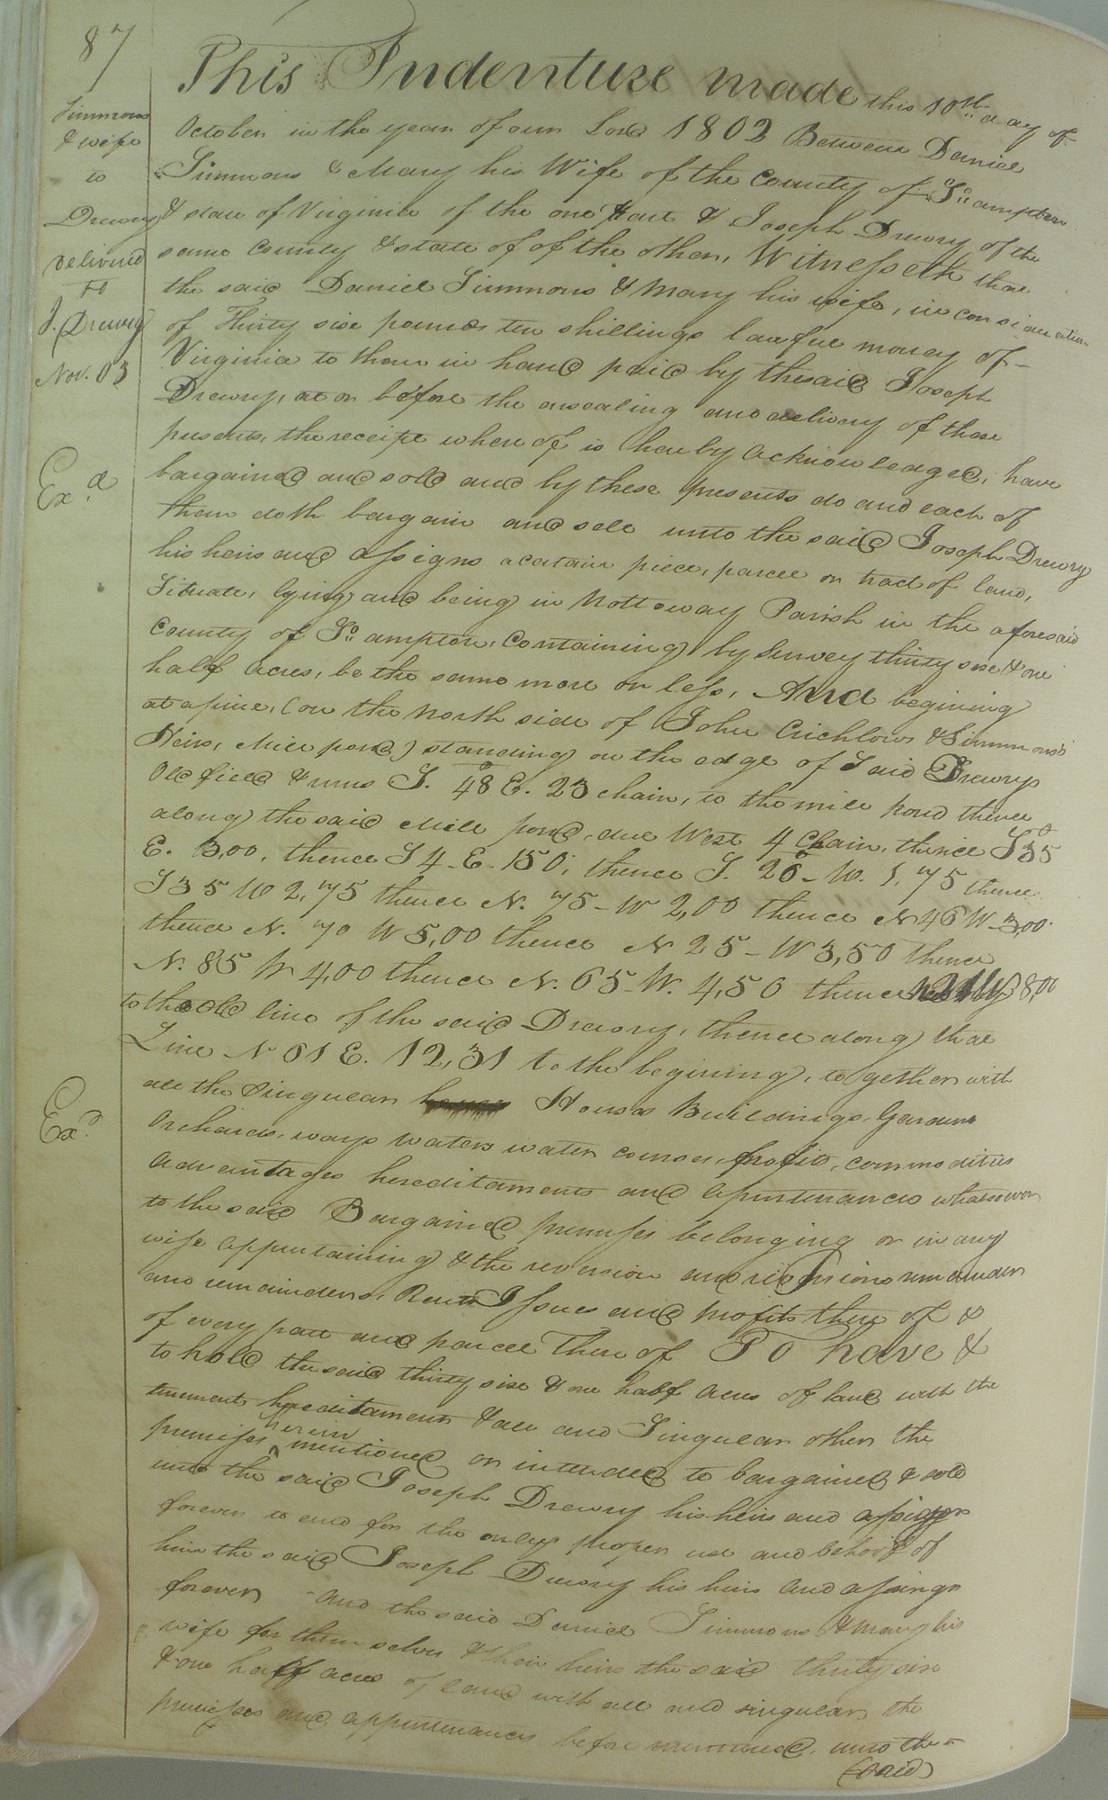 87
Simmons
& wife
to
Drewry
delivered
to
J. Drewry
Nov. 03
Exd
Exd
This Indenture made this 10th day of
October in the year of our Lord 1802 Between Daniel
Simmons & Mary his Wife of the County of So ampton
& state of Virginia of the one Part & Joseph Drewry of the
same County & state of of the other, Witnesseth that
the said Daniel Simmons & Mary his wife, in consideration
of Thirty six pounds ten shillings lawful money of
Virginia to them in hand paid by thesaid Joseph
Drewry, at or before the ensealing and delivery of these
presents, the receipt where of is hereby acknowledged, have
bargained and sold and by these presents do and each of
them doth bargain and sell unto the said Joseph Drewry
his heirs and assigns a certain piece, parcel or tract of land,
Situate, lying and being in Nottoway Parish in the aforesaid
County of So ampton, Containing by Survey thirty six & one
half Acres, be the same more or less, And begining
at a pine, (on the North side of John Crichlows & Simmons's
Heirs, Mill pond) standing on the edge of Said Drewrys
Old field & runs S. 48 E. 23 chain, to the mill pond thence
along the said Mill pond, due West 4 Chain, thence S 35
E. 3,00, thence S 4 - E - 150; thence S. 26 - W. 1,75 thence
S 35 W 2,75 thence N. 75 - W 2,00 thence N 46 W - 3,00
thence N. 70 W 5,00 thence N 25 - W 3,50 thence
N. 85 W 4,00 thence N. 65 - W. 4,50 thence 8,00
to the old line of the said Drewry, thence along that
Line N 61 E. 12,31 to the begining, together with
all the Singular Houses Buildings, Gardens
Orchards, ways waters water courses, profits, commodities
advantages hereditaments and apurtenances whatsoever
to the said Bargained premises belonging or in any
wise appurtaining & the reversion and reversions remainder
and remainders, Rents Issues and profits there of &
of every part and parcel There of To have &
to hold the said thirty six & one half Acres of land with the
tenements hereditaments & all and Singular other the
premises herein mentioned or intended to bargained & sold
unto the said Joseph Drewry his heirs and assigns
forever to and for the only proper use and behoof of
him the said Joseph Drewry his heirs and assings
forever and the said Daniel Simmons & Mary his
wife for them selves & their heirs the said thirty six
& one half acres of land with all and singular, the
premises and appurtenances before mentioned, unto the
(said)